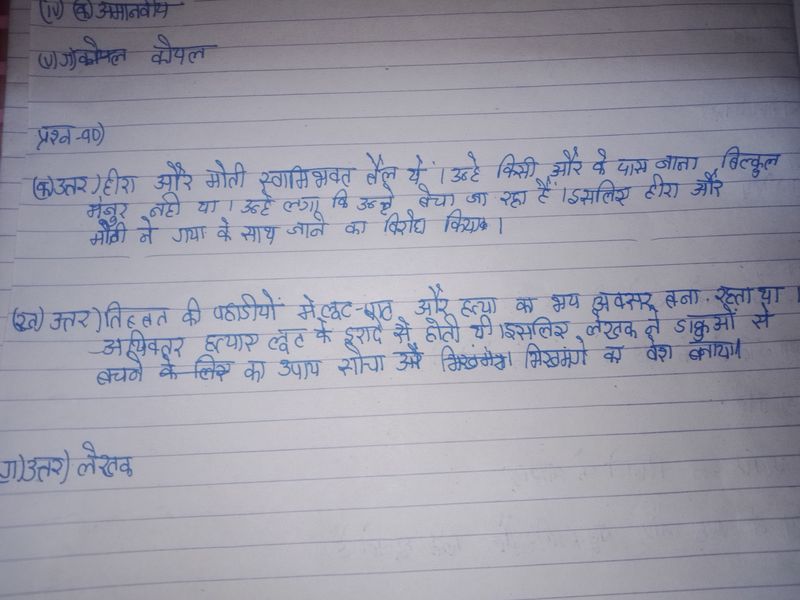 (iv) (क) अमानवीय
(v) ग) कोयल कोयल
प्रश्न-१०)
(क) उत्तर) हीरा और मोती स्वामिभक्त बैल थे। उन्हे किसी और के पास जाना बिल्कुल
मंजुर नही था। उन्हे लगा कि उन्हे बेचा जा रहा हैं। इसलिए हीरा और
मोती ने गया के साथ जाने का विरोध किया।
(ख) उत्तर) तिब्बत की पहाडीयों मे लूट-पाट और हत्या का भय अक्सर बना रहता था।
अधिकतर हत्याए लूट के इरादे से होती थी। इसलिए लेखक ने डाकुओं से
बचने के लिए का उपाय सोचा और भिखमंगे का वेश बनाया।
ग) उत्तर) लेखक